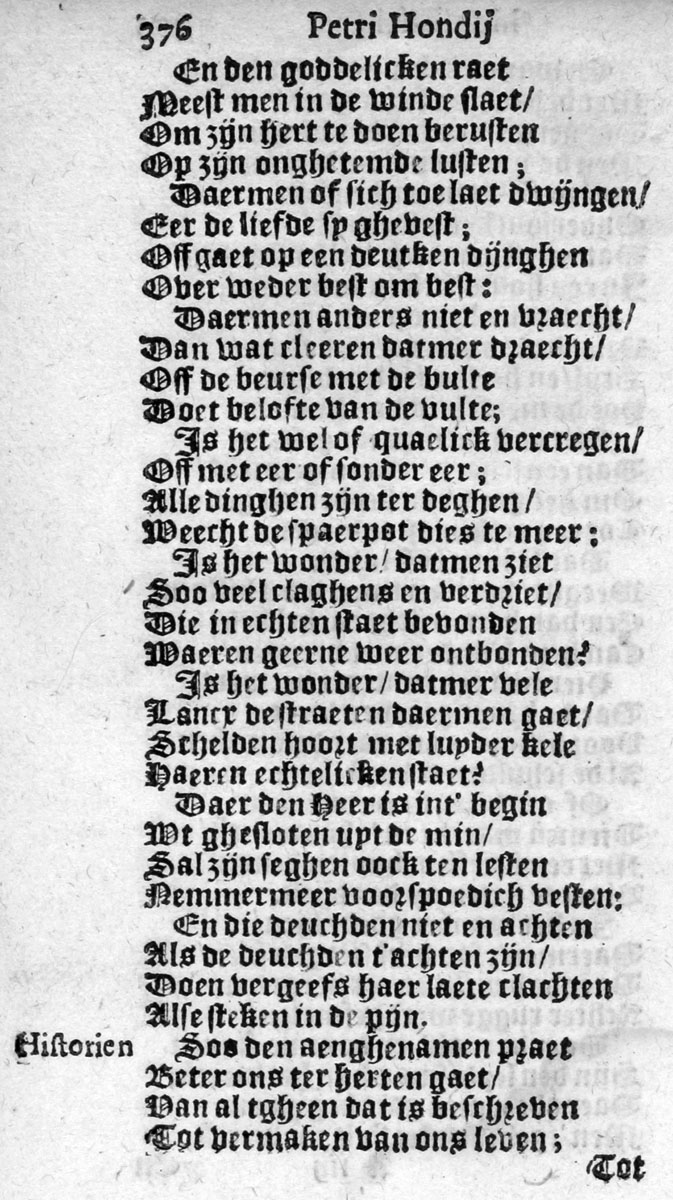 376 Petri Hondij
En den goddelicken raet
Meest men in de winde slaet/
Om zijn hert te doen berusten
Op zijn onghetemde lusten;
Daermen of sich toe laet dwijngen/
Eer de liefde sy ghevest;
Off gaet op een deutken dijnghen
Over weder best om best:
Daermen anders niet en vraecht/
Dan wat cleeren datmer draecht/
Off de beurse met de bulte
Doet belofte van de vulte;
Is het wel of quaelick vercregen/
Off met eer of sonder eer;
Alle dinghen zijn ter deghen/
Weecht de spaerpot dies te meer:
Is het wonder/ datmen ziet
Soo veel claghens en verdriet/
Die in echten staet bevonden
Waeren geerne weer ontbonden?
Is het wonder/ datmer vele
Lancx de straeten daermen gaet/
Schelden hoort met luyder kele
Haeren echtelicken staet?
Daer den Heer is int' begin
Wt ghesloten uyt de min/
Sal zijn seghen oock ten lesten
Nemmermeer voorspoedich vesten:
En die deuchden niet en achten
Als de deuchden t'achten zijn/
Doen vergeefs haer laete clachten
Alse steken in de pijn.
Historien Soo den aenghenamen praet
Beter ons ter herten gaet/
Van al tgheen dat is beschreven
Tot vermaken van ons leven;
Tot